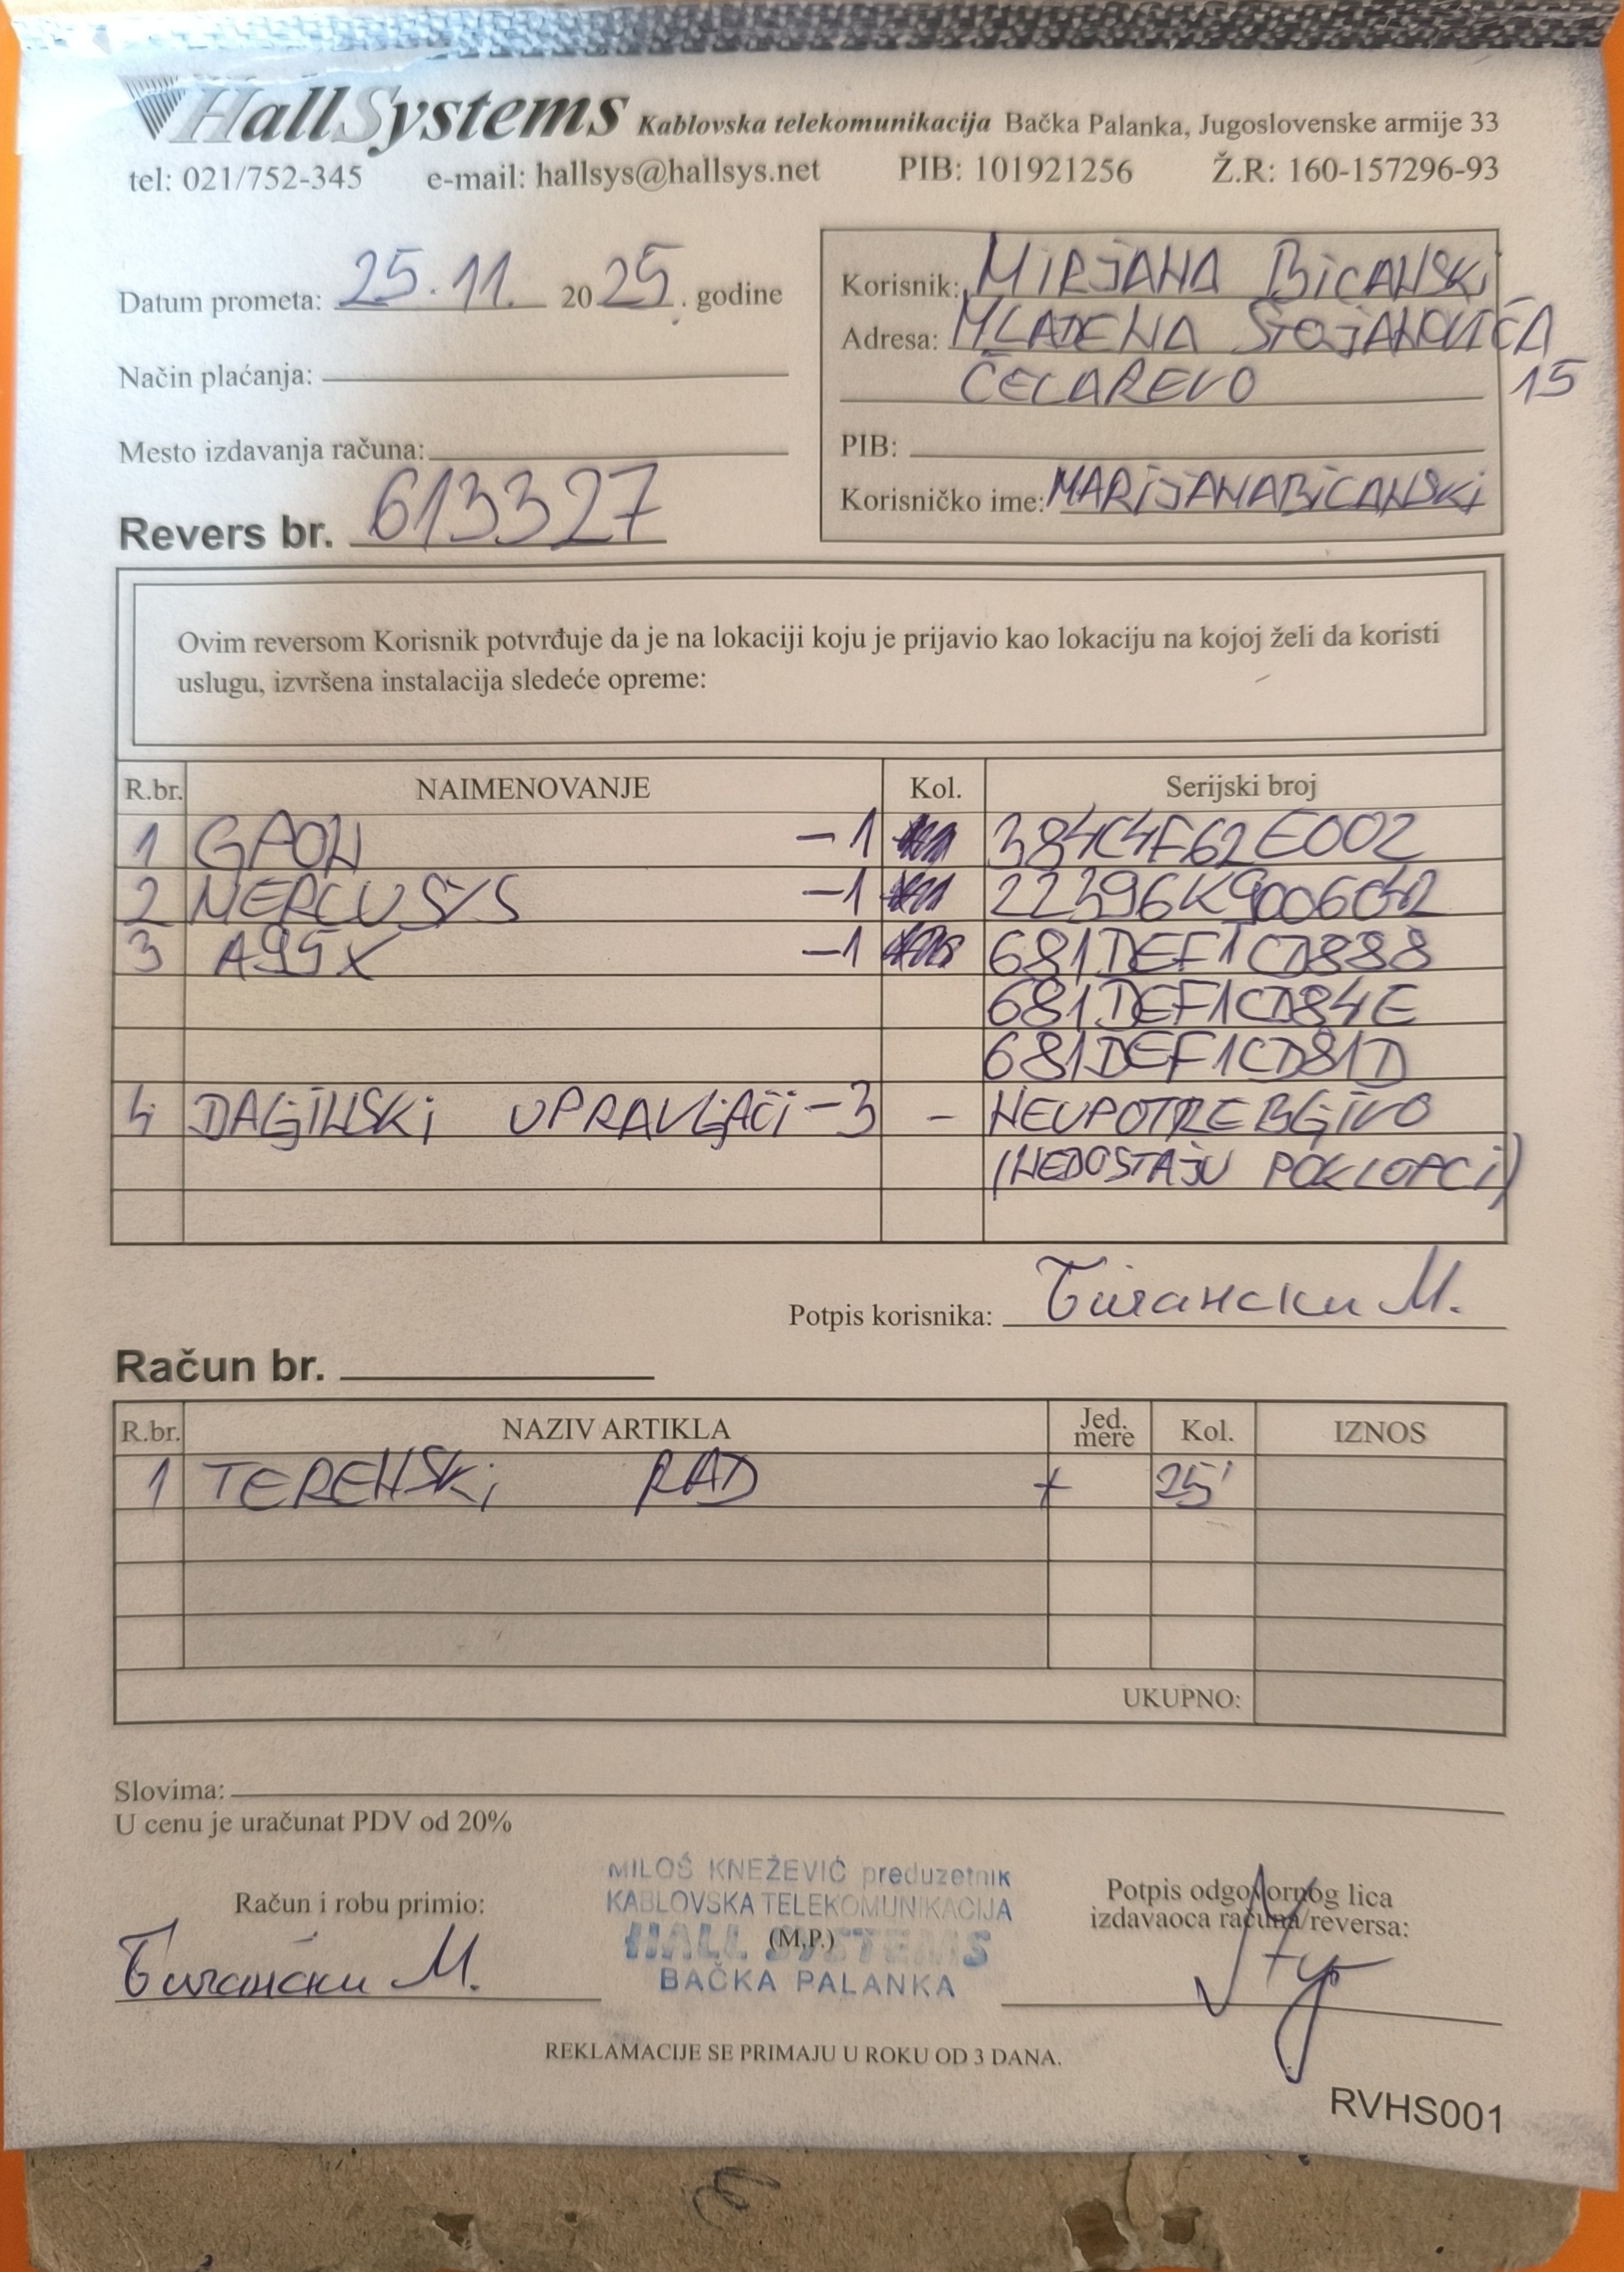 HallSystems Kablovska telekomunikacija Bačka Palanka, Jugoslovenske armije 33
tel: 021/752-345 e-mail: hallsys@hallsys.net PIB: 101921256 Ž.R: 160-157296-93
Datum prometa: 25.11. 2025. godine
Način plaćanja:
Mesto izdavanja računa:
Revers br. 613327
Korisnik: MIRJANA BICANSKI
Adresa: MLADENA STOJANOVIĆA 15
ČELAREVO
PIB:
Korisničko ime: MARIJANABICANSKI
Ovim reversom Korisnik potvrđuje da je na lokaciji koju je prijavio kao lokaciju na kojoj želi da koristi
uslugu, izvršena instalacija sledeće opreme:
R.br. NAIMENOVANJE Kol. Serijski broj
1 GAON -1 384C4F62E002
2 MERCUSYS -1
3 A99X -1 681DEF1CD888
681DEF1CD84E
681DEF1CD81D
4 DALJINSKI UPRAVLJAČI -3 - NEUPOTREBLJIVO
(NEDOSTAJU POKLOPCI)
Potpis korisnika: Бичански М.
Račun br.
R.br. NAZIV ARTIKLA Jed. mere Kol. IZNOS
1 TERENSKI RAD + 25'
UKUPNO:
Slovima:
U cenu je uračunat PDV od 20%
Račun i robu primio:
Бичански М.
MILOŠ KNEŽEVIĆ preduzetnik
KABLOVSKA TELEKOMUNIKACIJA
HALL SYSTEMS
(M.P.)
BAČKA PALANKA
Potpis odgovornog lica
izdavaoca računa/reversa:
REKLAMACIJE SE PRIMAJU U ROKU OD 3 DANA.
RVHS001